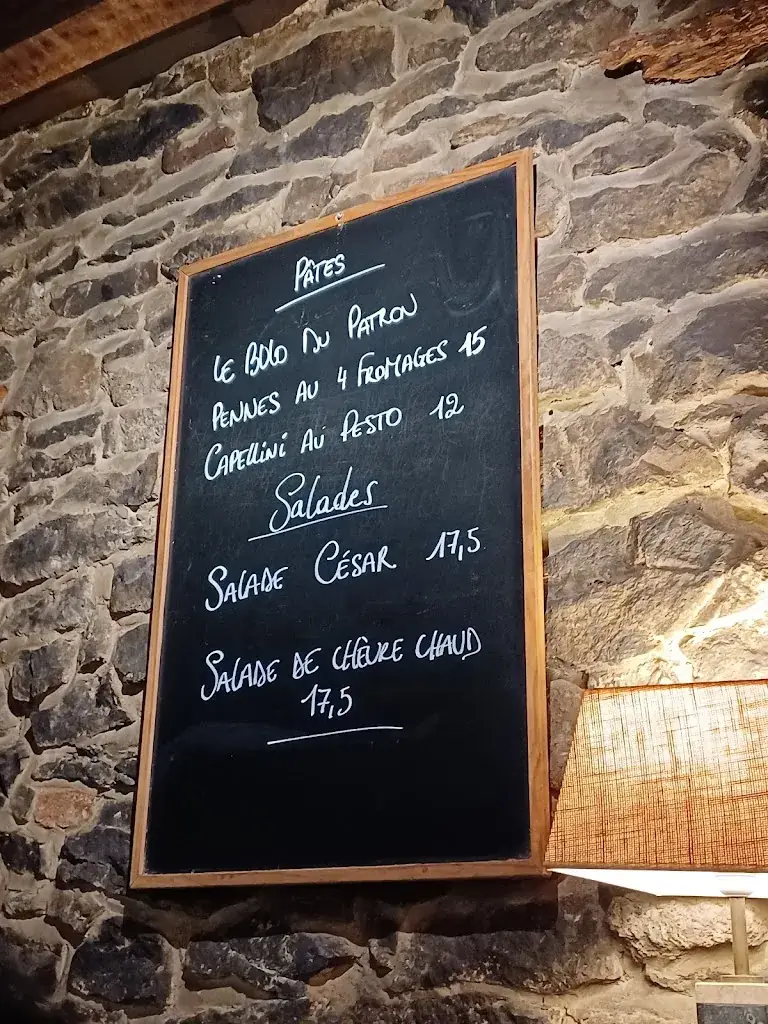 PÂTES
LE BOLO DU PATRON
PENNES AU 4 FROMAGES 15
CAPELLINI AU PESTO 12
Salades
SALADE CÉSAR 17,5
SALADE DE CHÈVRE CHAUD
17,5